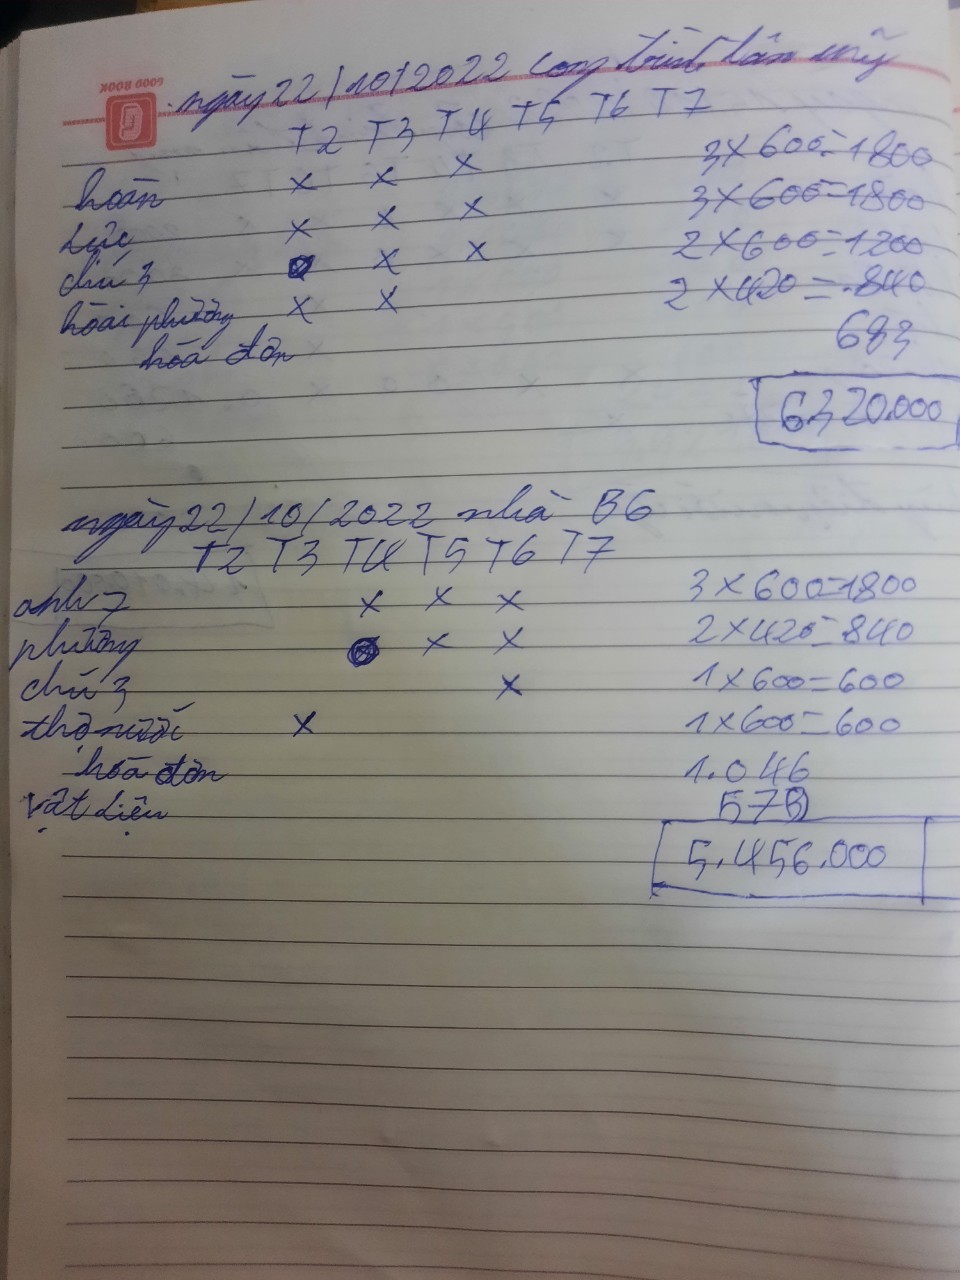 GOOD BOOK
G
ngày 22/10/2022 công trình tân mỹ
T2 T3 T4 T5 T6 T7
hoàn x x x 3x600=1800
lực x x x 3x600=1800
chú 3 x x 2x600=1200
hoài phương x x 2x420=840
hóa đơn 683
6320.000
ngày 22/10/2022 nhà B6
T2 T3 T4 T5 T6 T7
anh 7 x x x 3x600=1800
phương x x 2x420=840
chú 3 x 1x600=600
thợ nước x 1x600=600
hóa đơn 1.046
vật liệu 570
5.456.000